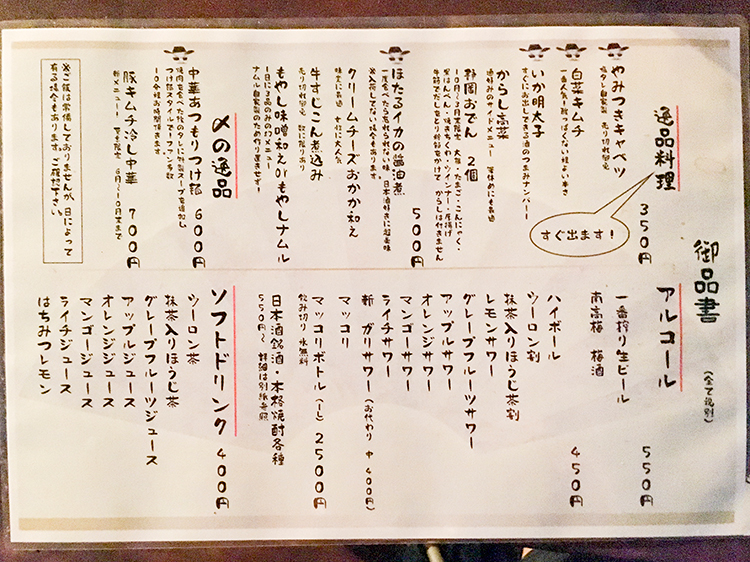 御品書
(全て税別)
逸品料理
350円
すぐ出ます!
やみつきキャベツ
白菜キムチ
いか明太子
すぐにお出しできる酒のつまみナンバー
からし高菜
静岡おでん 2個
500円
ほたるイカの醤油煮
クリームチーズおかか和え
牛すじこん煮込み
もやし味噌和えorもやしナムル
〆の逸品
中華あつもりつけ麺 600円
豚キムチ冷し中華 700円
※ご飯は常備しておりませんが、日によって
有る場合もあります。ご確認下さい。
アルコール
一番搾り生ビール 550円
南高梅 梅酒
450円
ハイボール
ウーロン割
抹茶入りほうじ茶割
レモンサワー
グレープフルーツサワー
アップルサワー
オレンジサワー
マンゴーサワー
ライチサワー
新 ガリサワー(お代わり 中 400円)
マッコリ
マッコリボトル(1L) 2500円
飲み切り 氷無料
日本酒銘酒・本格焼酎各種
550円〜 詳細は別紙参照
ソフトドリンク 400円
ウーロン茶
抹茶入りほうじ茶
グレープフルーツジュース
アップルジュース
オレンジジュース
マンゴージュース
ライチジュース
はちみつレモン